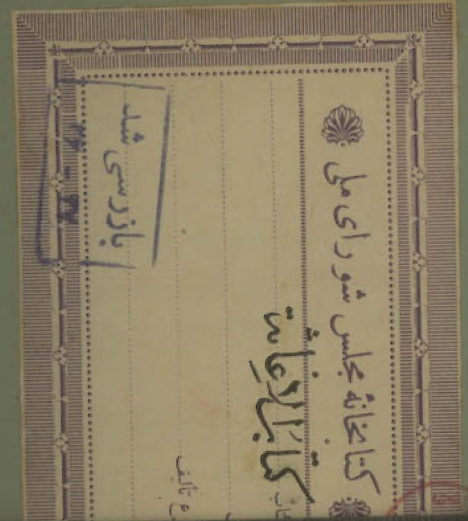 کتابخانهٔ مجلس شورای ملی
کتاب الاغاثة
تألیف
بازرسی شد